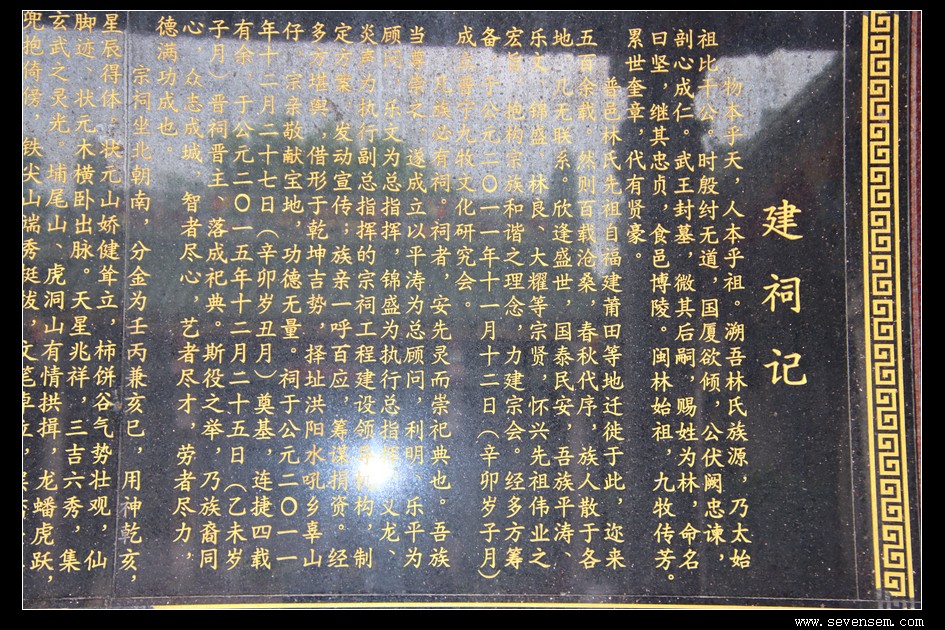 建祠记
物本乎天，人本乎祖。溯吾林氏族源，乃太始
祖比干公。时殷纣无道，国厦欲倾，公伏阙忠谏，
剖心成仁。武王封墓，微其后嗣，赐姓为林，命名
曰坚，继其忠贞，食邑博陵。闽林始祖，九牧传芳。
累世奎章，代有贤豪。
普邑林氏先祖自福建莆田等地迁徙于此，迩来
五百余载。然则百载沧桑，春秋代序，族人散于各
地，几无联系。欣逢盛世，国泰民安，吾族平涛、
乐文、锦盛、林良、大耀等宗贤，怀兴先祖伟业之
宏旨，抱构宗族和谐之理念，力建宗会。经多方筹
备，于公元二〇一一年十一月十二日（辛卯岁子月）
成立普宁九牧文化研究会。
凡族必有祠。祠者，安先灵而崇祀典也。吾族
当尊崇之，遂成立以平涛为总顾问，利明、乐平为
顾问，乐文为总指挥，锦盛为执行总指挥，义龙、
炎声为执行副总指挥的宗祠工程建设领导机构，制
定方案，发动宣传；族亲一呼百应，筹谋捐资。经
多方堪舆，借形于乾坤吉势，择址洪阳水吼乡辜山
仔。宗亲敬献宝地，功德无量。祠于公元二〇一一
年十二月二十七日（辛卯岁丑月）奠基，连捷四载
有余，于公元二〇一五年十二月二十五日（乙未岁
子月）晋祠晋主、落成祀典。斯役之举，乃族裔同
心，众志成城，智者尽心，艺者尽才，劳者尽力，
德满功成也。
宗祠坐北朝南，分金为壬丙兼亥巳，用神乾亥，
星辰得体。状元山娇健耸立，柿饼谷气势壮观，仙
脚迹、状元木横卧出脉。天星兆祥，三吉六秀，集
玄武之灵光。埔尾山、虎洞山有情拱揖，龙蟠虎跃，
兜抱倚傍，铁尖山端秀挺拔，文笔
www.sevensem.com